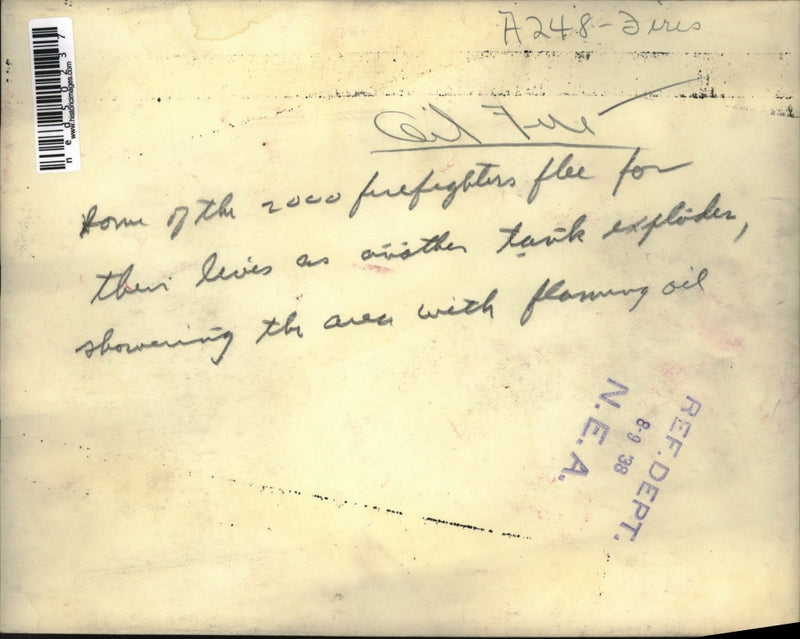 A248-Fires
Oil Fire
Some of the 2000 firefighters flee for
their lives as another tank explodes,
showering the area with flaming oil
REF. DEPT.
8-9 38
N.E.A.
ned50237
www.historicimages.com